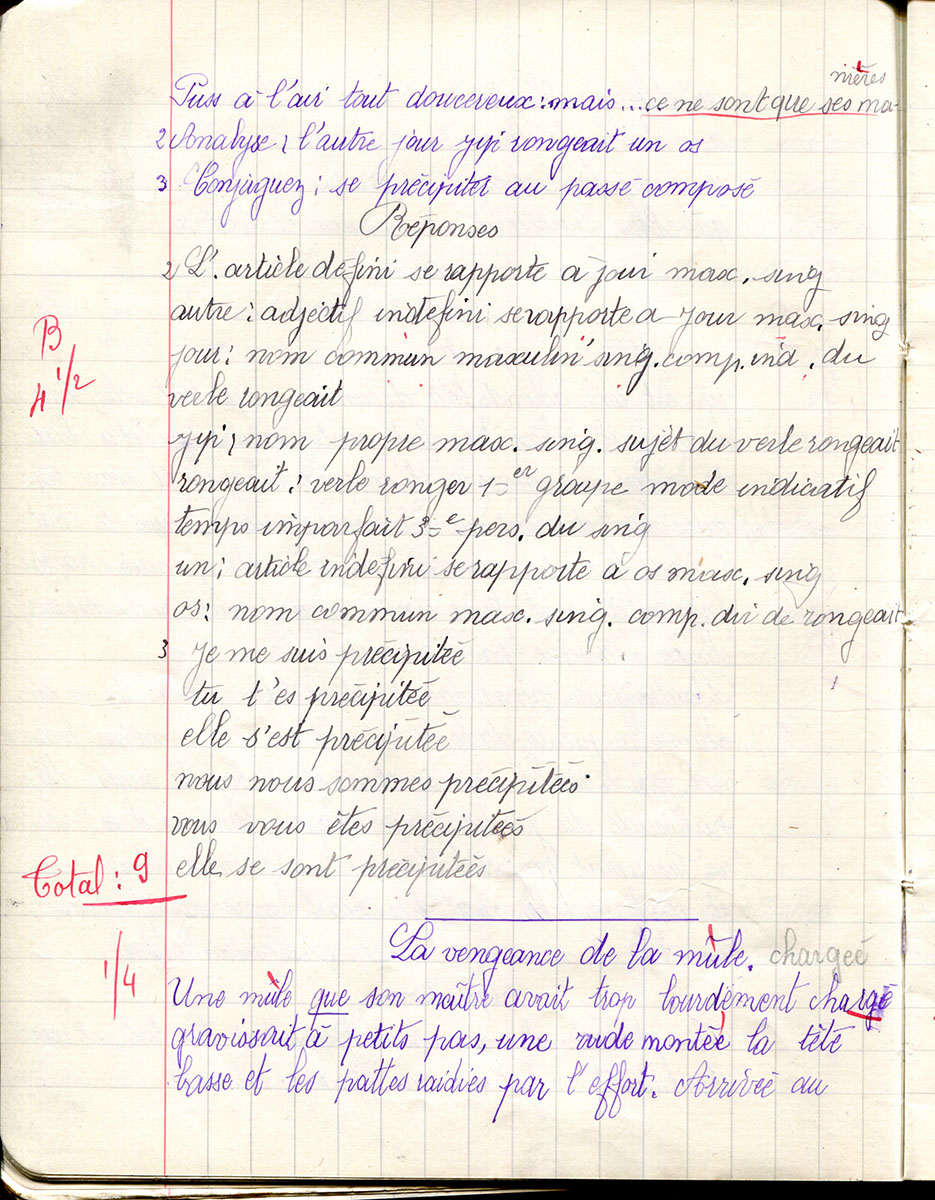 nières
Puss à l'air tout doucereux : mais... ce ne sont que ses ma-
2 Analyse : l'autre jour Jypi rongeait un os
3 Conjuguez : se précipiter au passé composé
Réponses
2 L'. article défini se rapporte à jour masc. sing
autre : adjectif indéfini se rapporte a jour masc. sing
jour : nom commun masculin sing. comp. ind. du
verbe rongeait
Jypi : nom propre masc. sing. sujet du verbe rongeait
rongeait : verbe ronger 1er groupe mode indicatif
temps imparfait 3e pers. du sing
un : article indéfini se rapporte à os masc. sing
os : nom commun masc. sing. comp. dir de rongeait
B
4 1/2
3 Je me suis précipitée
tu t'es précipitée
elle s'est précipitée
nous nous sommes précipitées
vous vous êtes précipitées
elle se sont précipitées
Total : 9
La vengeance de la mûle. chargée
1/4
Une mûle que son maître avait trop lourdement chargé
gravissait à petits pas, une rude montée, la tête
basse et les pattes raidies par l'effort. Arrivée au